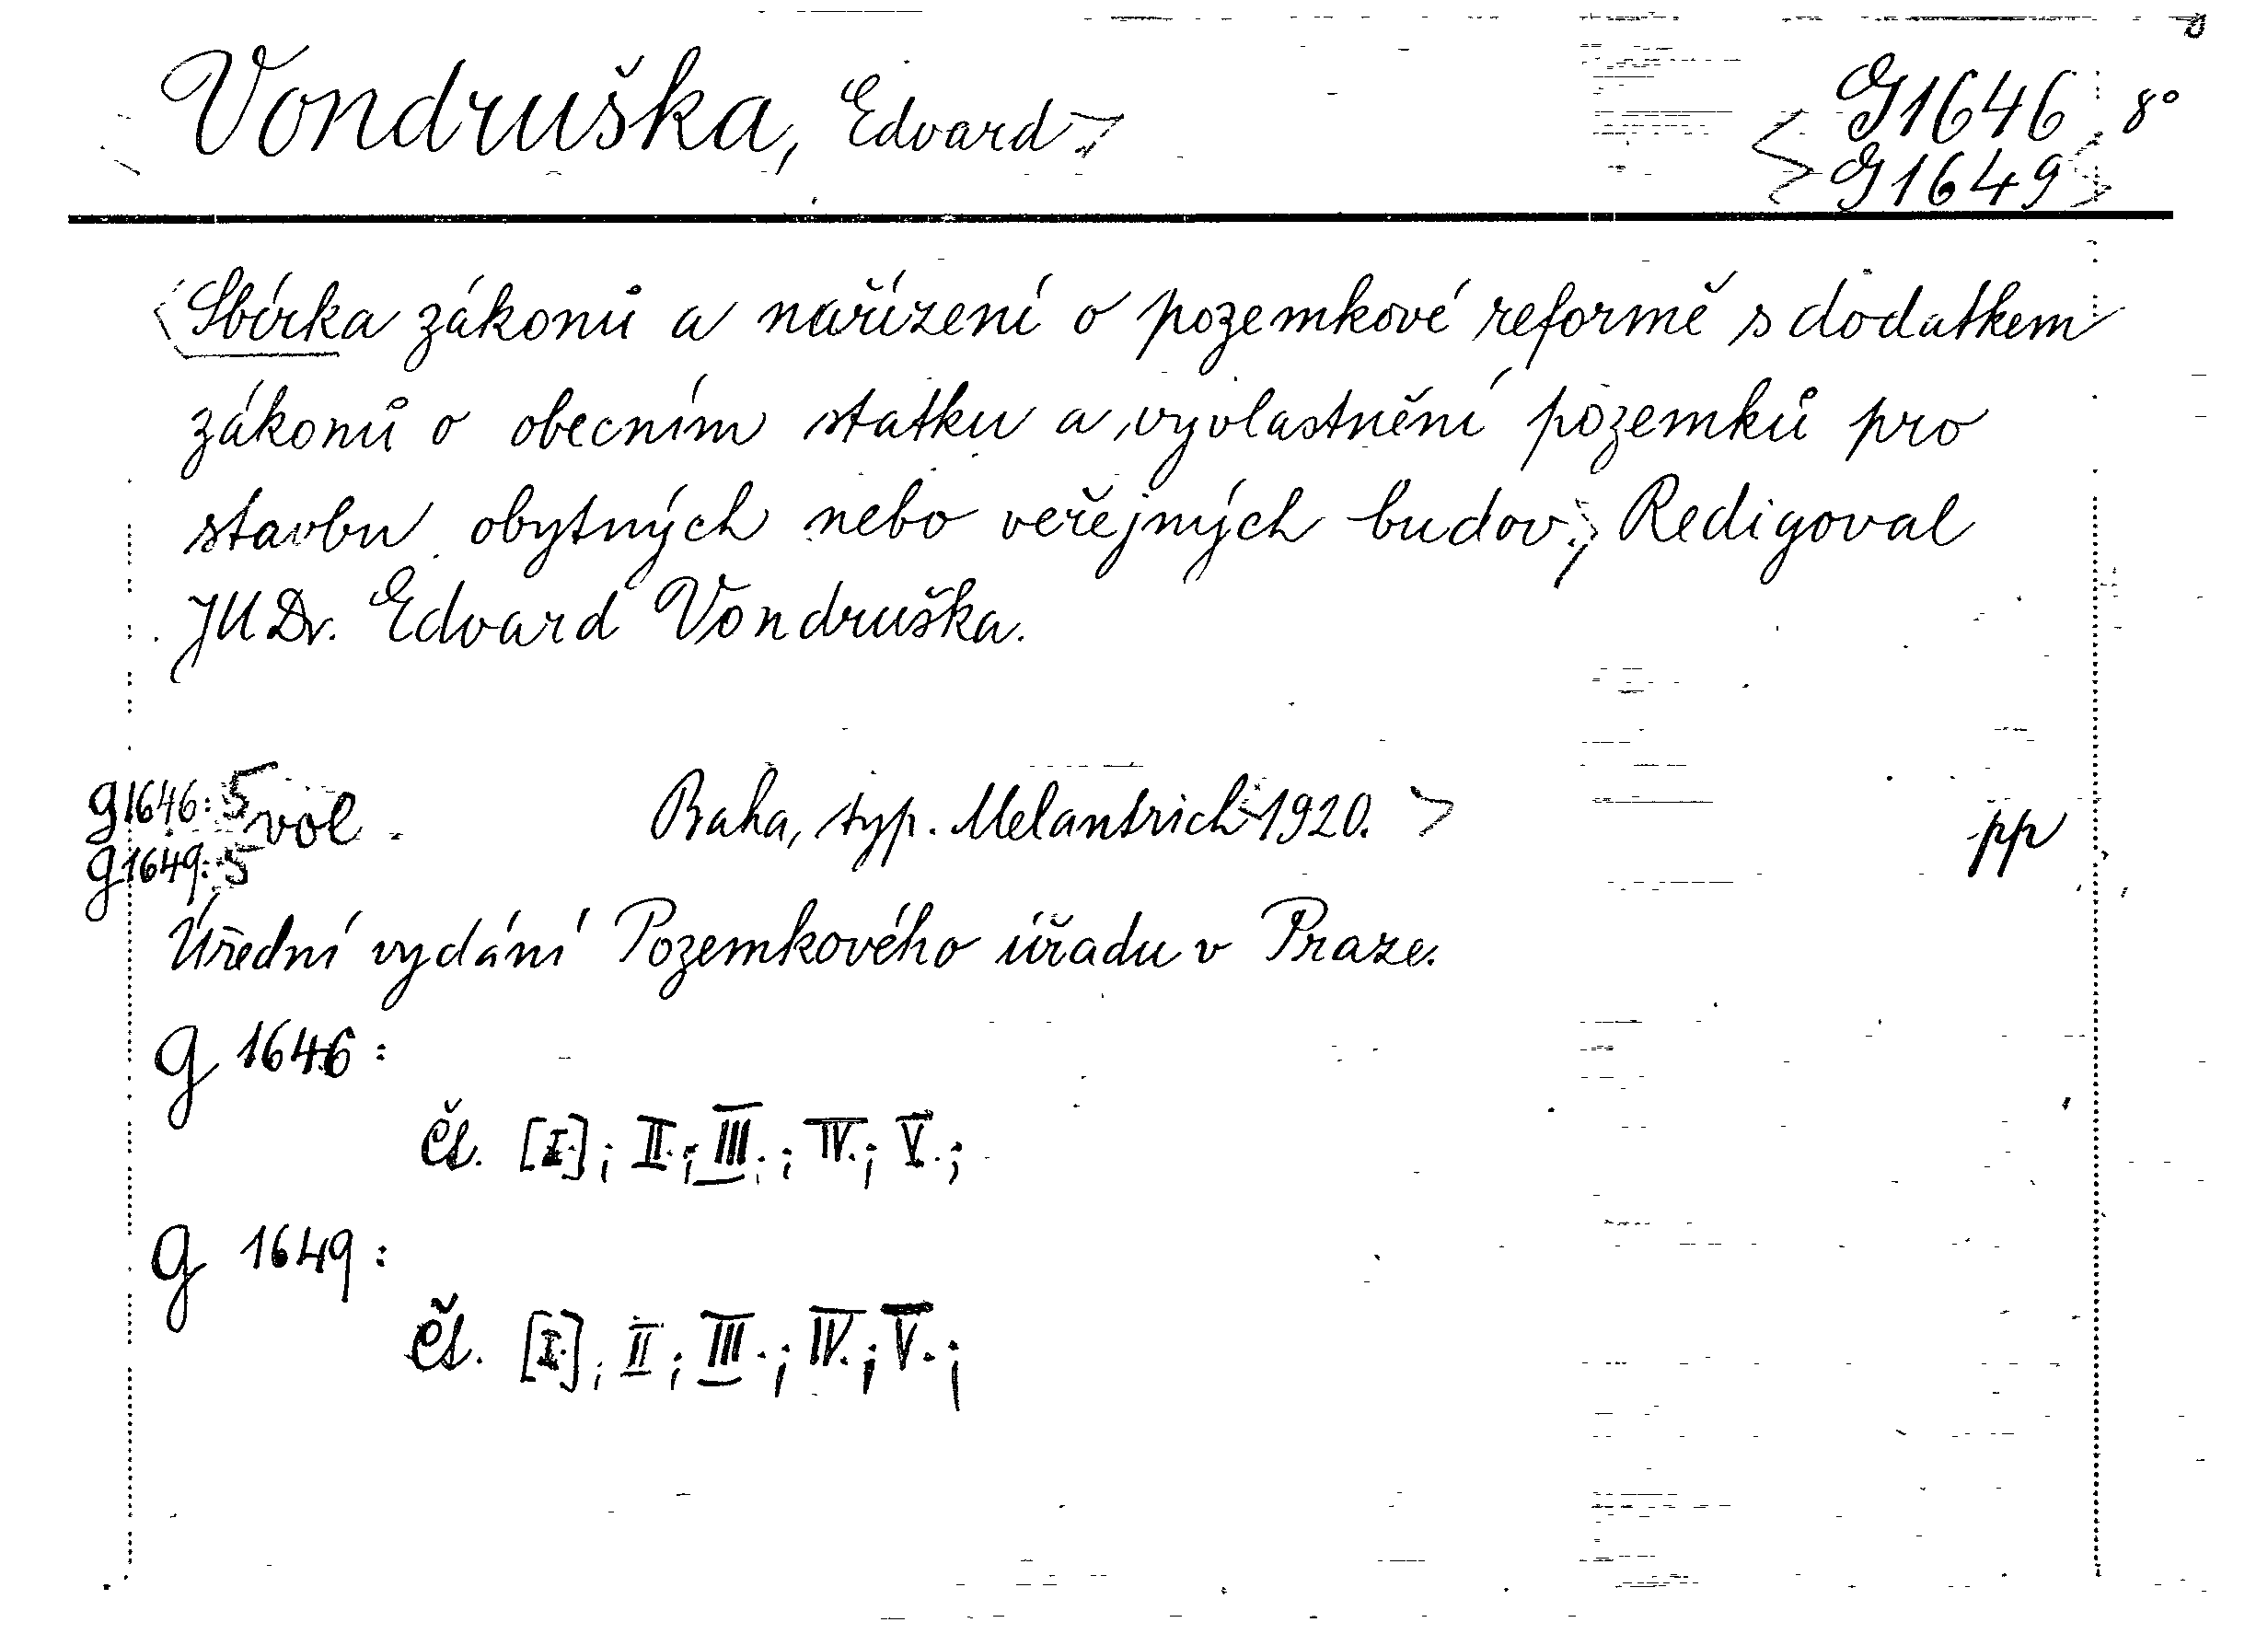 Vondruška, Edvard G1646 8°
G1649
Sbírka zákonů a nařízení o pozemkové reformě s dodatkem
zákonů o obecním statku a vyvlastnění pozemků pro
stavbu obytných nebo veřejných budov; Redigoval
JUDr. Edvard Vondruška.
g1646: 5 vol. Praha, typ. Melantrich 1920. pp
g1649: 5
Úřední vydání Pozemkového úřadu v Praze.
g 1646:
čs. [I.]; II.; III.; IV.; V.;
g 1649:
čs. [I.]; II; III.; IV.; V.;